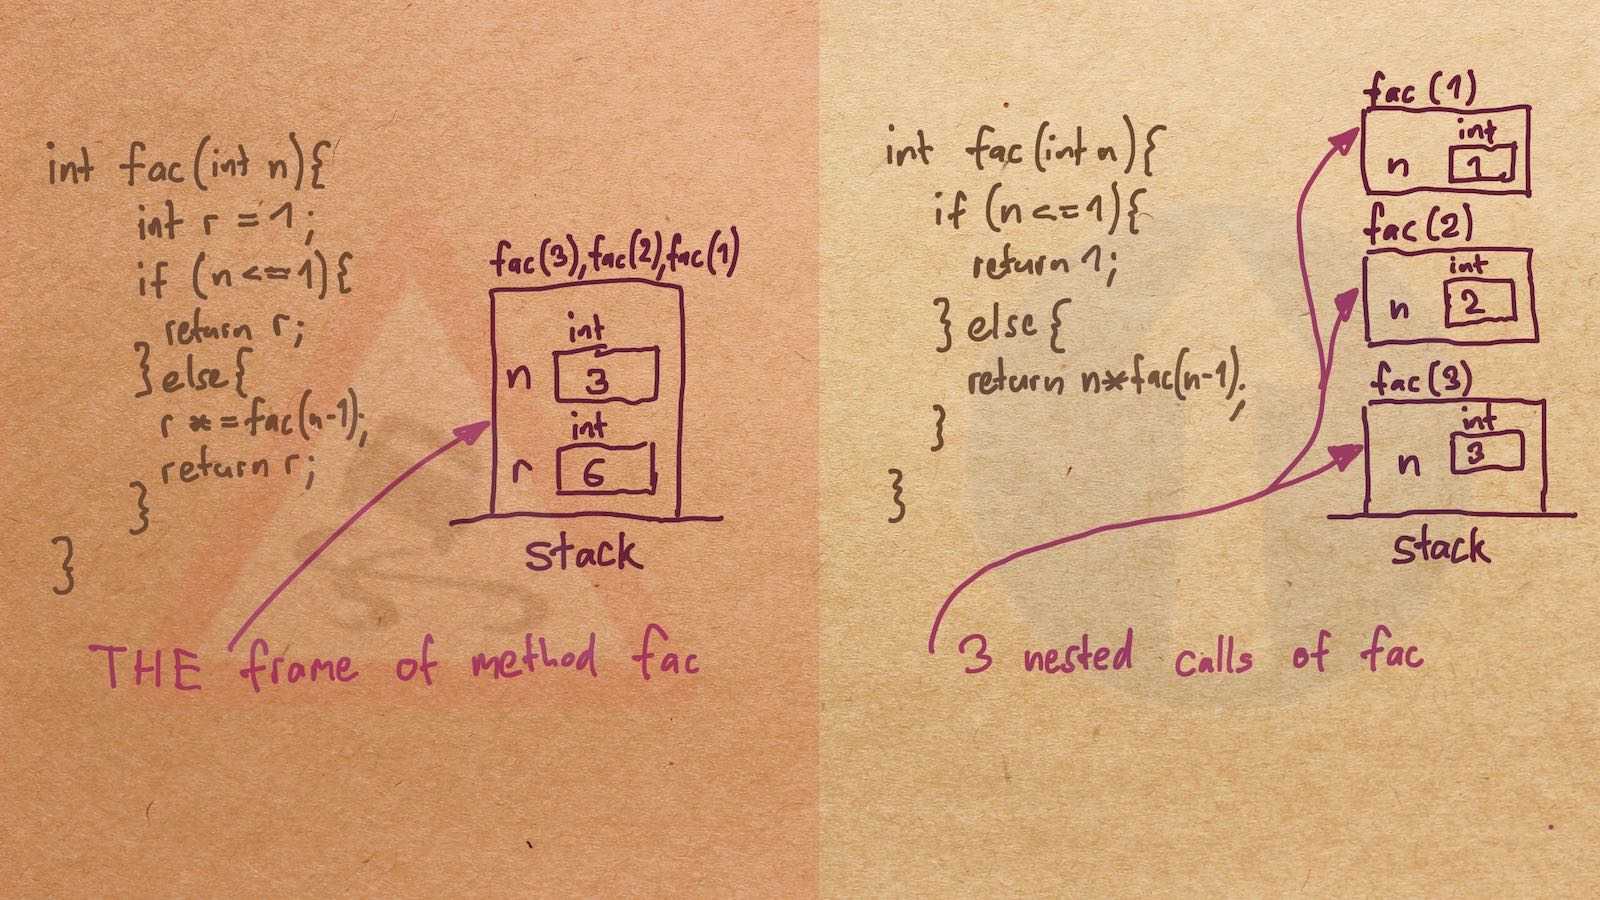 int fac(int n){
int r = 1;
if (n<=1){
return r;
}else{
r *=fac(n-1);
return r;
}
}
fac(3),fac(2),fac(1)
int
n 3
int
r 6
stack
THE frame of method fac
int fac(int n){
if (n<=1){
return 1;
} else {
return n*fac(n-1);
}
}
fac(1)
int
n 1
fac(2)
int
n 2
fac(3)
int
n 3
stack
3 nested calls of fac